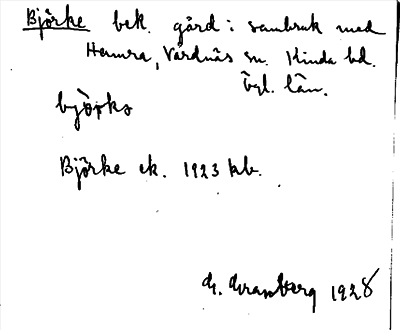 Björke bek. gård i sambruk med
Hamra, Vårdnäs sn. Kinda hd.
Ögl. län.
björkə
Björke ek. 1923 kb.
G. Granberg 1928